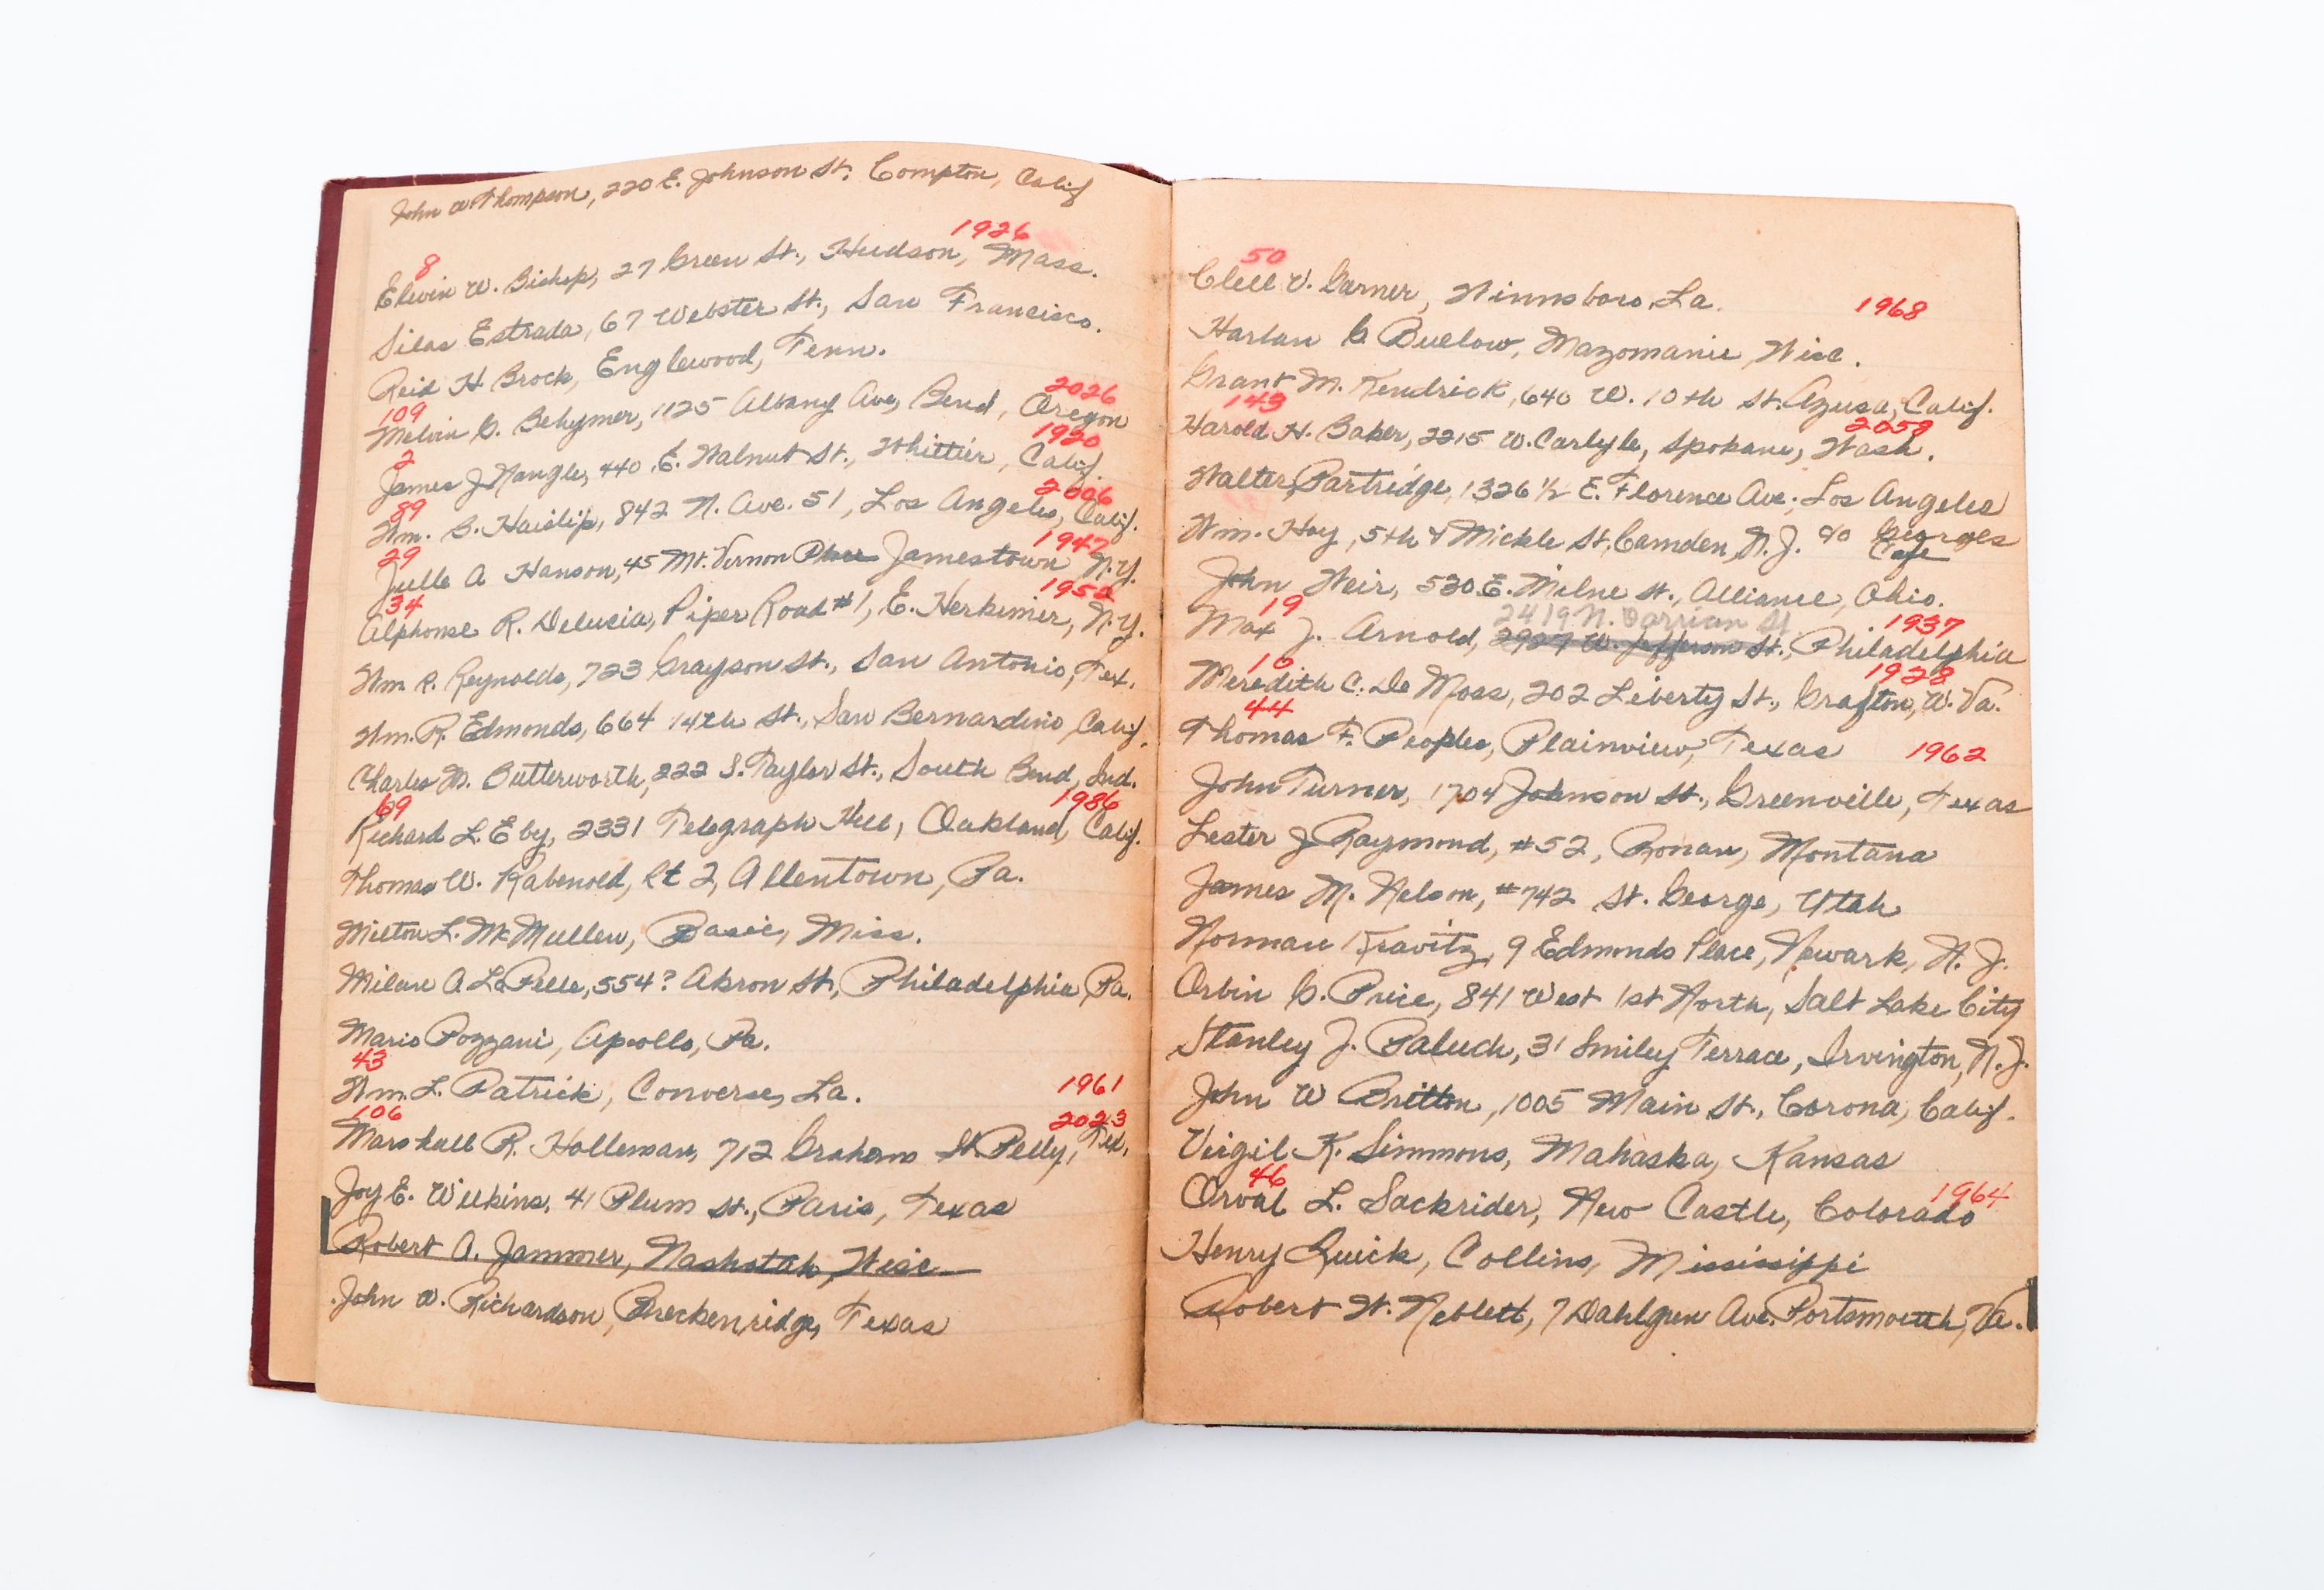 John W Thompson, 220 E. Johnson St. Compton, Calif
8 1926
Elwin W. Bishop, 27 Green St., Hudson, Mass.
Silas Estrada, 67 Webster St., San Francisco.
Reid H Brock, Englewood, Tenn.
109 2026
Melvin G. Behymer, 1125 Albany Ave, Bend, Oregon
2 1920
James J Nangle, 440 E. Walnut St., Whittier, Calif.
89 2006
Wm. B. Haislip, 842 N. Ave. 51, Los Angeles, Calif.
29 1947
Julle A Hanson, 45 Mt. Vernon Place Jamestown N.Y.
34 1952
Alphonse R. Delucia, Piper Road #1, E. Herkimer, N.Y.
Wm. R. Reynolds, 723 Grayson St., San Antonio, Tex.
Wm. R. Edmonds, 664 14th St., San Bernardino, Calif.
Charles M. Butterworth, 222 S. Taylor St., South Bend, Ind.
69 1986
Richard L. Eby, 2331 Telegraph Hill, Oakland, Calif.
Thomas W. Rabenold, Rt 2, Allentown, Pa.
Milton L. McMullen, Basic, Miss.
Milan A. LaPelle, 554? Akron St., Philadelphia, Pa.
Mario Pozzani, Apollo, Pa.
43
Wm. L. Patrick, Converse, La. 1961
106 2023
Marshall R. Holleman, 712 Grahams St Pelly, Tex.
Joy E. Wilkins, 41 Plum St., Paris, Texas
Robert A. Jammer, Nashotah, Wisc
John W. Richardson, Breckenridge, Texas
50
Clell V. Garner, Winnsboro, La. 1968
Harlan G Buelow, Mazomanie, Wisc.
Grant M. Kendrick, 640 W. 10th St. Azusa, Calif.
143 2059
Harold H. Baker, 2215 W. Carlyle, Spokane, Wash.
Walter Partridge, 1326 1/2 E. Florence Ave., Los Angeles
Wm. Hoy, 5th & Mickle St. Camden, N.J. % Georges
Cafe
John Weir, 530 E. Milne St., Alliance, Ohio.
19 2419 N. Darrian St 1937
Max J. Arnold, 2927 W. Jefferson St., Philadelphia
10 1928
Meredith C. De Moss, 202 Liberty St., Grafton, W. Va.
44
Thomas F. Peoples, Plainview, Texas 1962
John Turner, 1704 Johnson St., Greenville, Texas
Lester J Raymond, #52, Ronan, Montana
James M. Nelson, #742 St. George, Utah
Norman Kravitz, 9 Edmonds Place, Newark, N.J.
Orbin G. Price, 841 West 1st North, Salt Lake City
Stanley J. Paluch, 31 Smiley Terrace, Irvington, N.J.
John W Britton, 1005 Main St., Corona, Calif.
Virgil K. Simmons, Mahaska, Kansas
46 1964
Orval L. Sackrider, New Castle, Colorado
Henry Quick, Collins, Mississippi
Robert W. Neblett, 7 Dahlgren Ave. Portsmouth, Va.